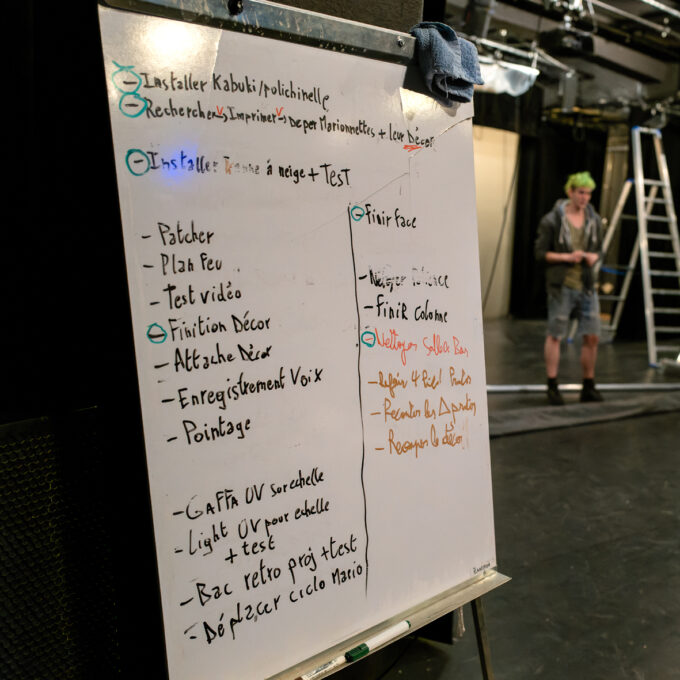 - Installer Kabuki/polichinelle
- Rechercher v, Imprimer v → Deper Marionnettes + leur Décor
- Installer à neige + TEST
- Patcher
- Plan feu
- Test vidéo
- Finition Décor
- Attache Décor
- Enregistrement Voix
- Pointage
- GAFFA UV sur echelle
- Light UV pour echelle
+ test
- Bac retro proj + test
- Déplacer ciclo Mario
- Finir face
- Finir colonne
- Nettoyer Salle Bas
- 4
- les Δ
- le décor